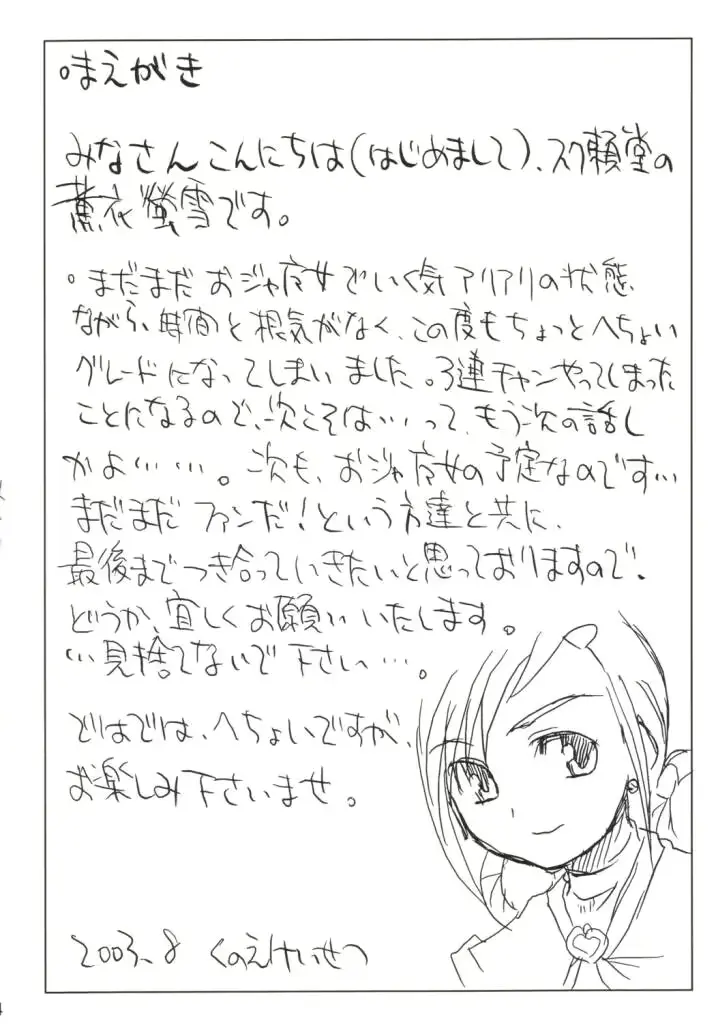 ◦まえがき
みなさんこんにちは(はじめまして)、スク頼堂の
薫衣螢雪です。
◦まだまだおジャ魔女でいく気アリアリの状態
ながら、時間と根気がなく、この度もちょっとへちょい
グレードになってしまいました。3連チャンやってしまった
ことになるので、次こそは…って、もう次の話し
かよ………。次も、おジャ魔女の予定なのです…
まだまだファンだ!という方達と共に、
最後までつき合っていきたいと思っておりますので、
どうか、宜しくお願いいたします。
…見捨てないで下さい…。
ではでは、へちょいですが、
お楽しみ下さいませ。
2003.8 くのえけいせつ